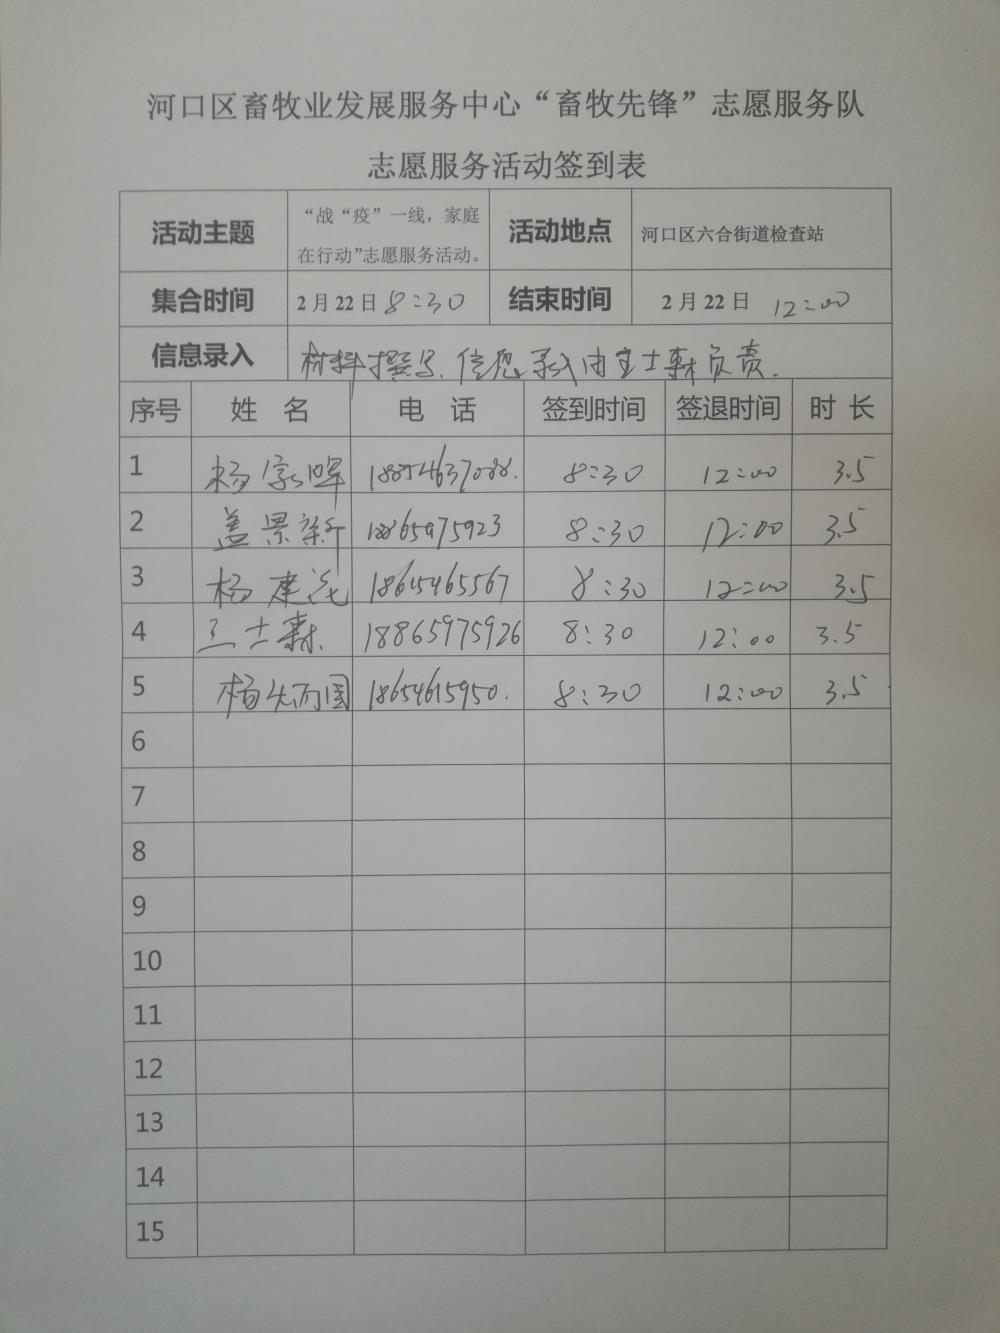 河口区畜牧业发展服务中心“畜牧先锋”志愿服务队
志愿服务活动签到表
活动主题 “战“疫”一线，家庭在行动”志愿服务活动。 活动地点 河口区六合街道检查站
集合时间 2月22日 8:30 结束时间 2月22日 12:00
信息录入 材料撰写、信息 由王士森负责.
序号 姓 名 电 话 签到时间 签退时间 时 长
1 杨 8:30 12:00 3.5
2 盖景新 18865975923 8:30 12:00 3.5
3 杨建花 18615465567 8:30 12:00 3.5
4 王士森 18865975926 8:30 12:00 3.5
5 杨炳国 18654615950. 8:30 12:00 3.5
6
7
8
9
10
11
12
13
14
15